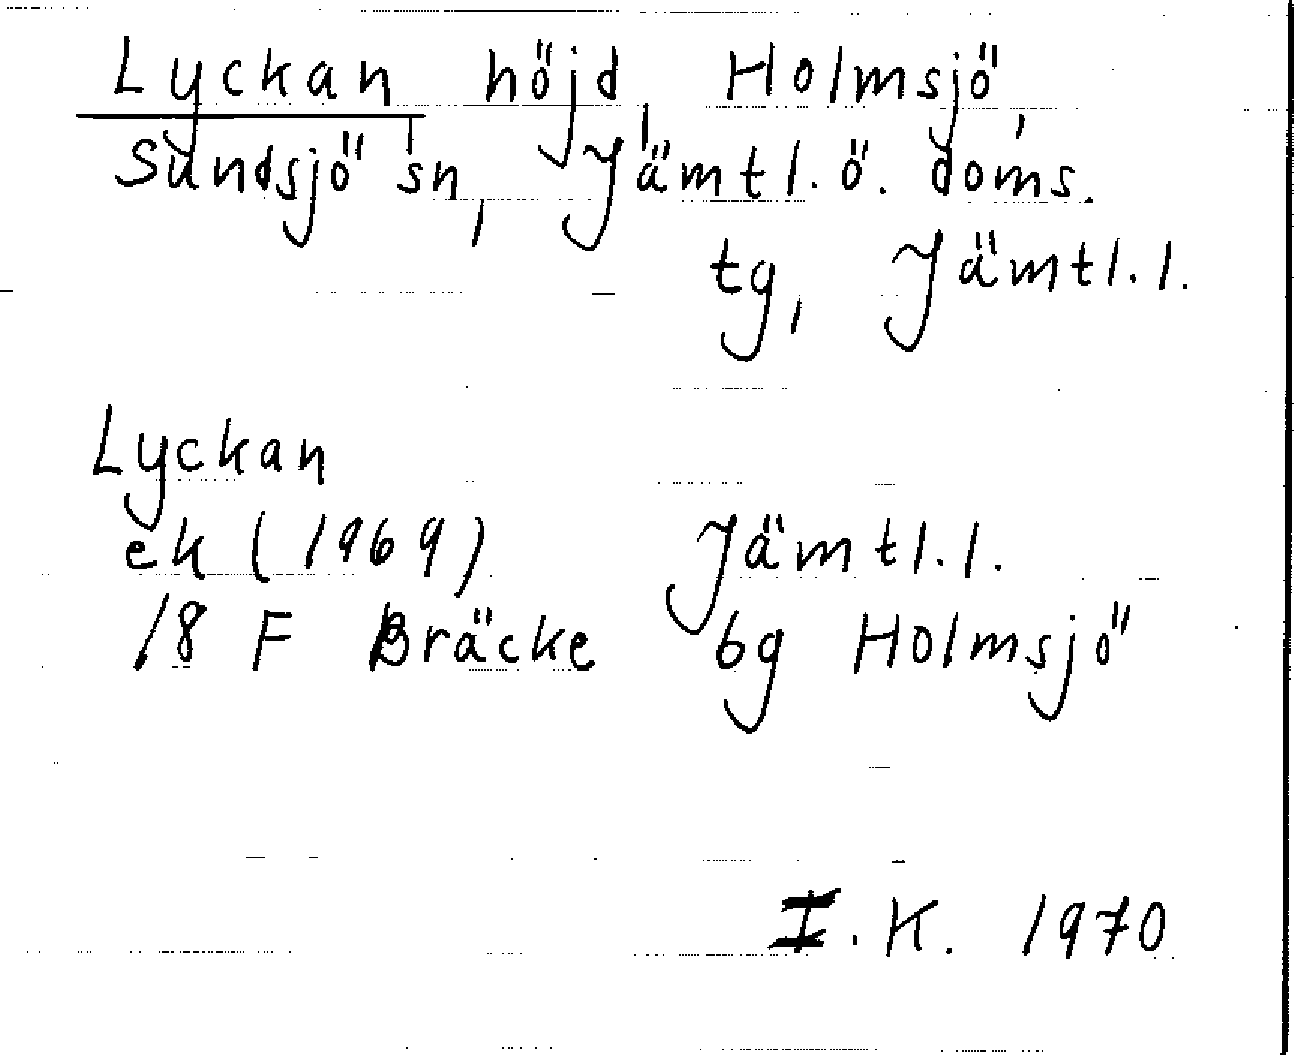 Lyckan, höjd, Holmsjö,
Sundsjö sn, Jämtl. ö. doms.
tg, Jämtl. l.
Lyckan
ek (1969) Jämtl. l.
18 F Bräcke bg Holmsjö
I. K. 1970